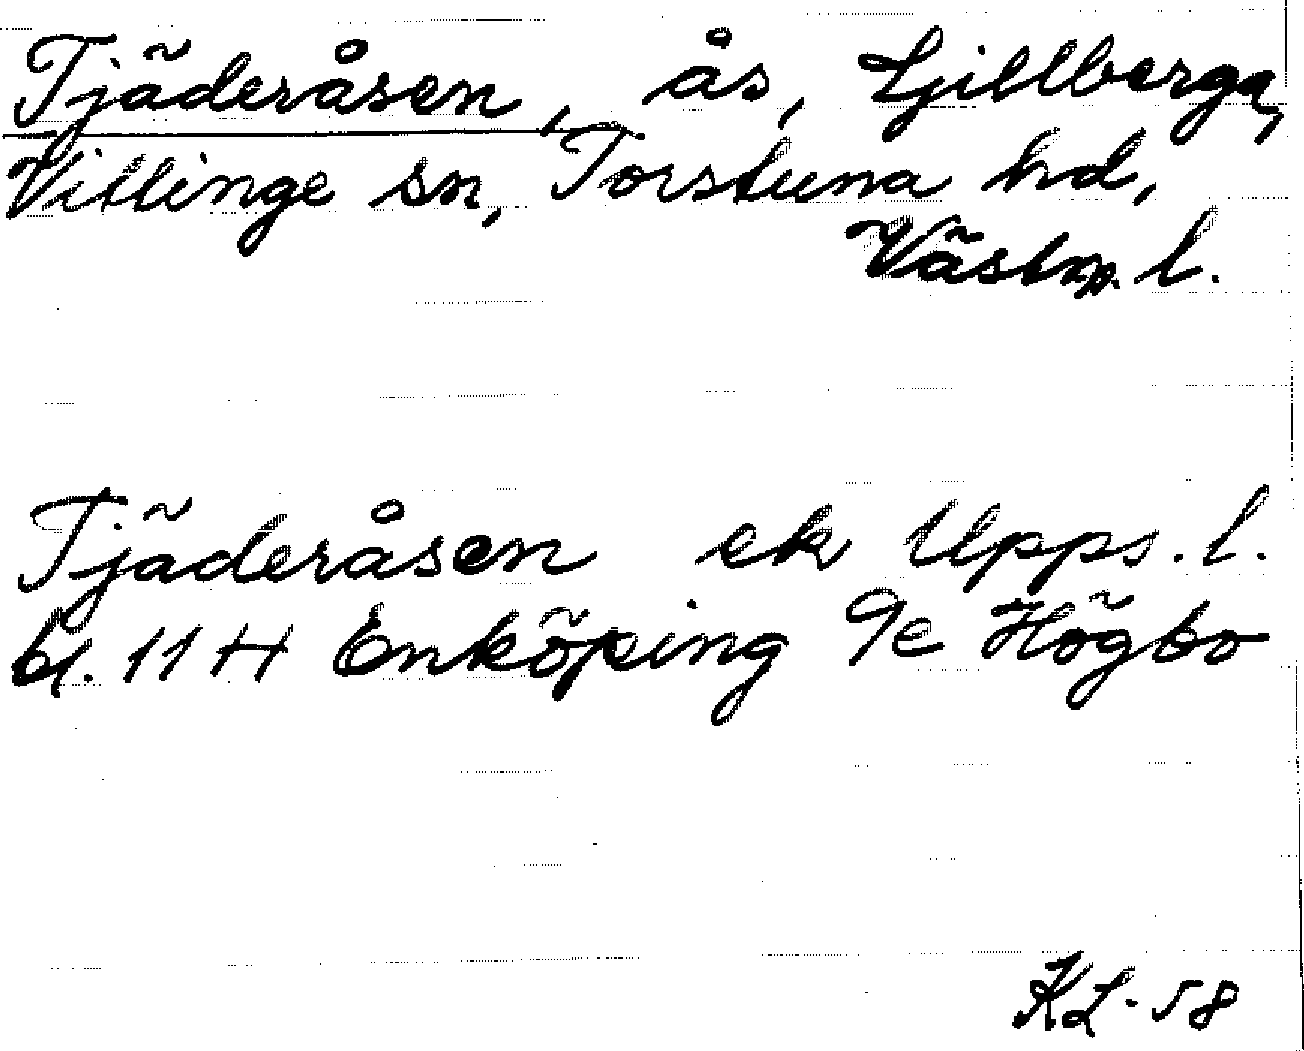 Tjäderåsen, ås, Ljillberga,
Villinge sn, Torstuna hd,
Västm. l.
Tjäderåsen ek Upps. l.
bl. 11 H Enköping 9e Högbo
KL-58